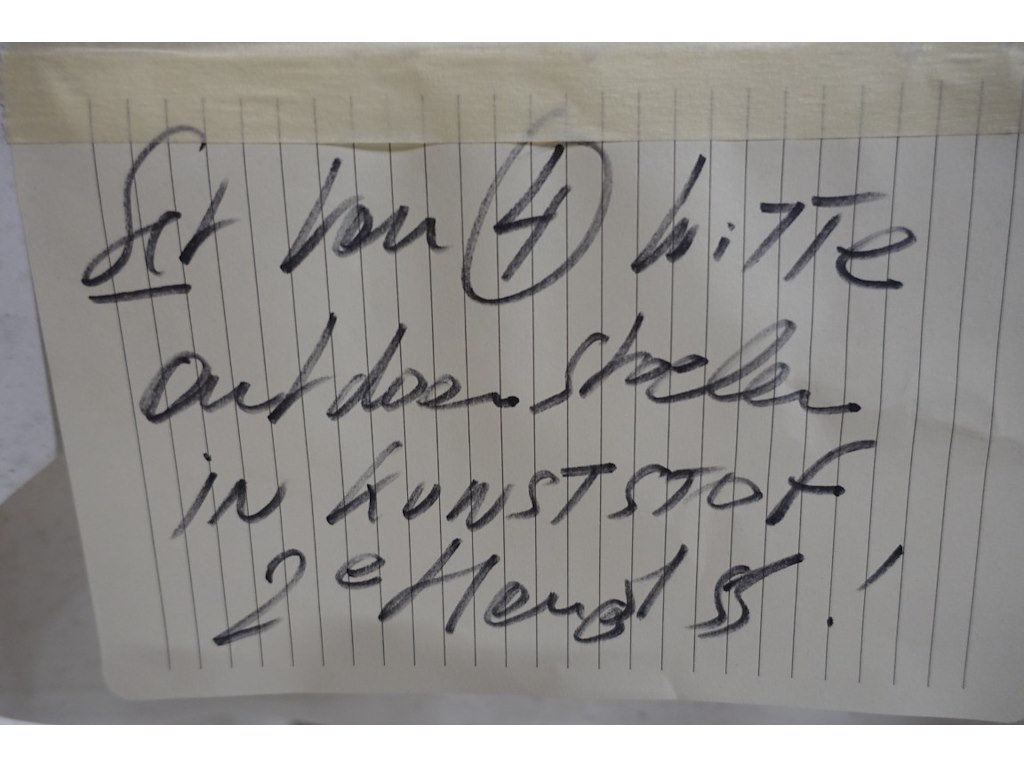 Set van 4 witte
outdoor stoelen
in KUNSTSTOF
2e Hands !